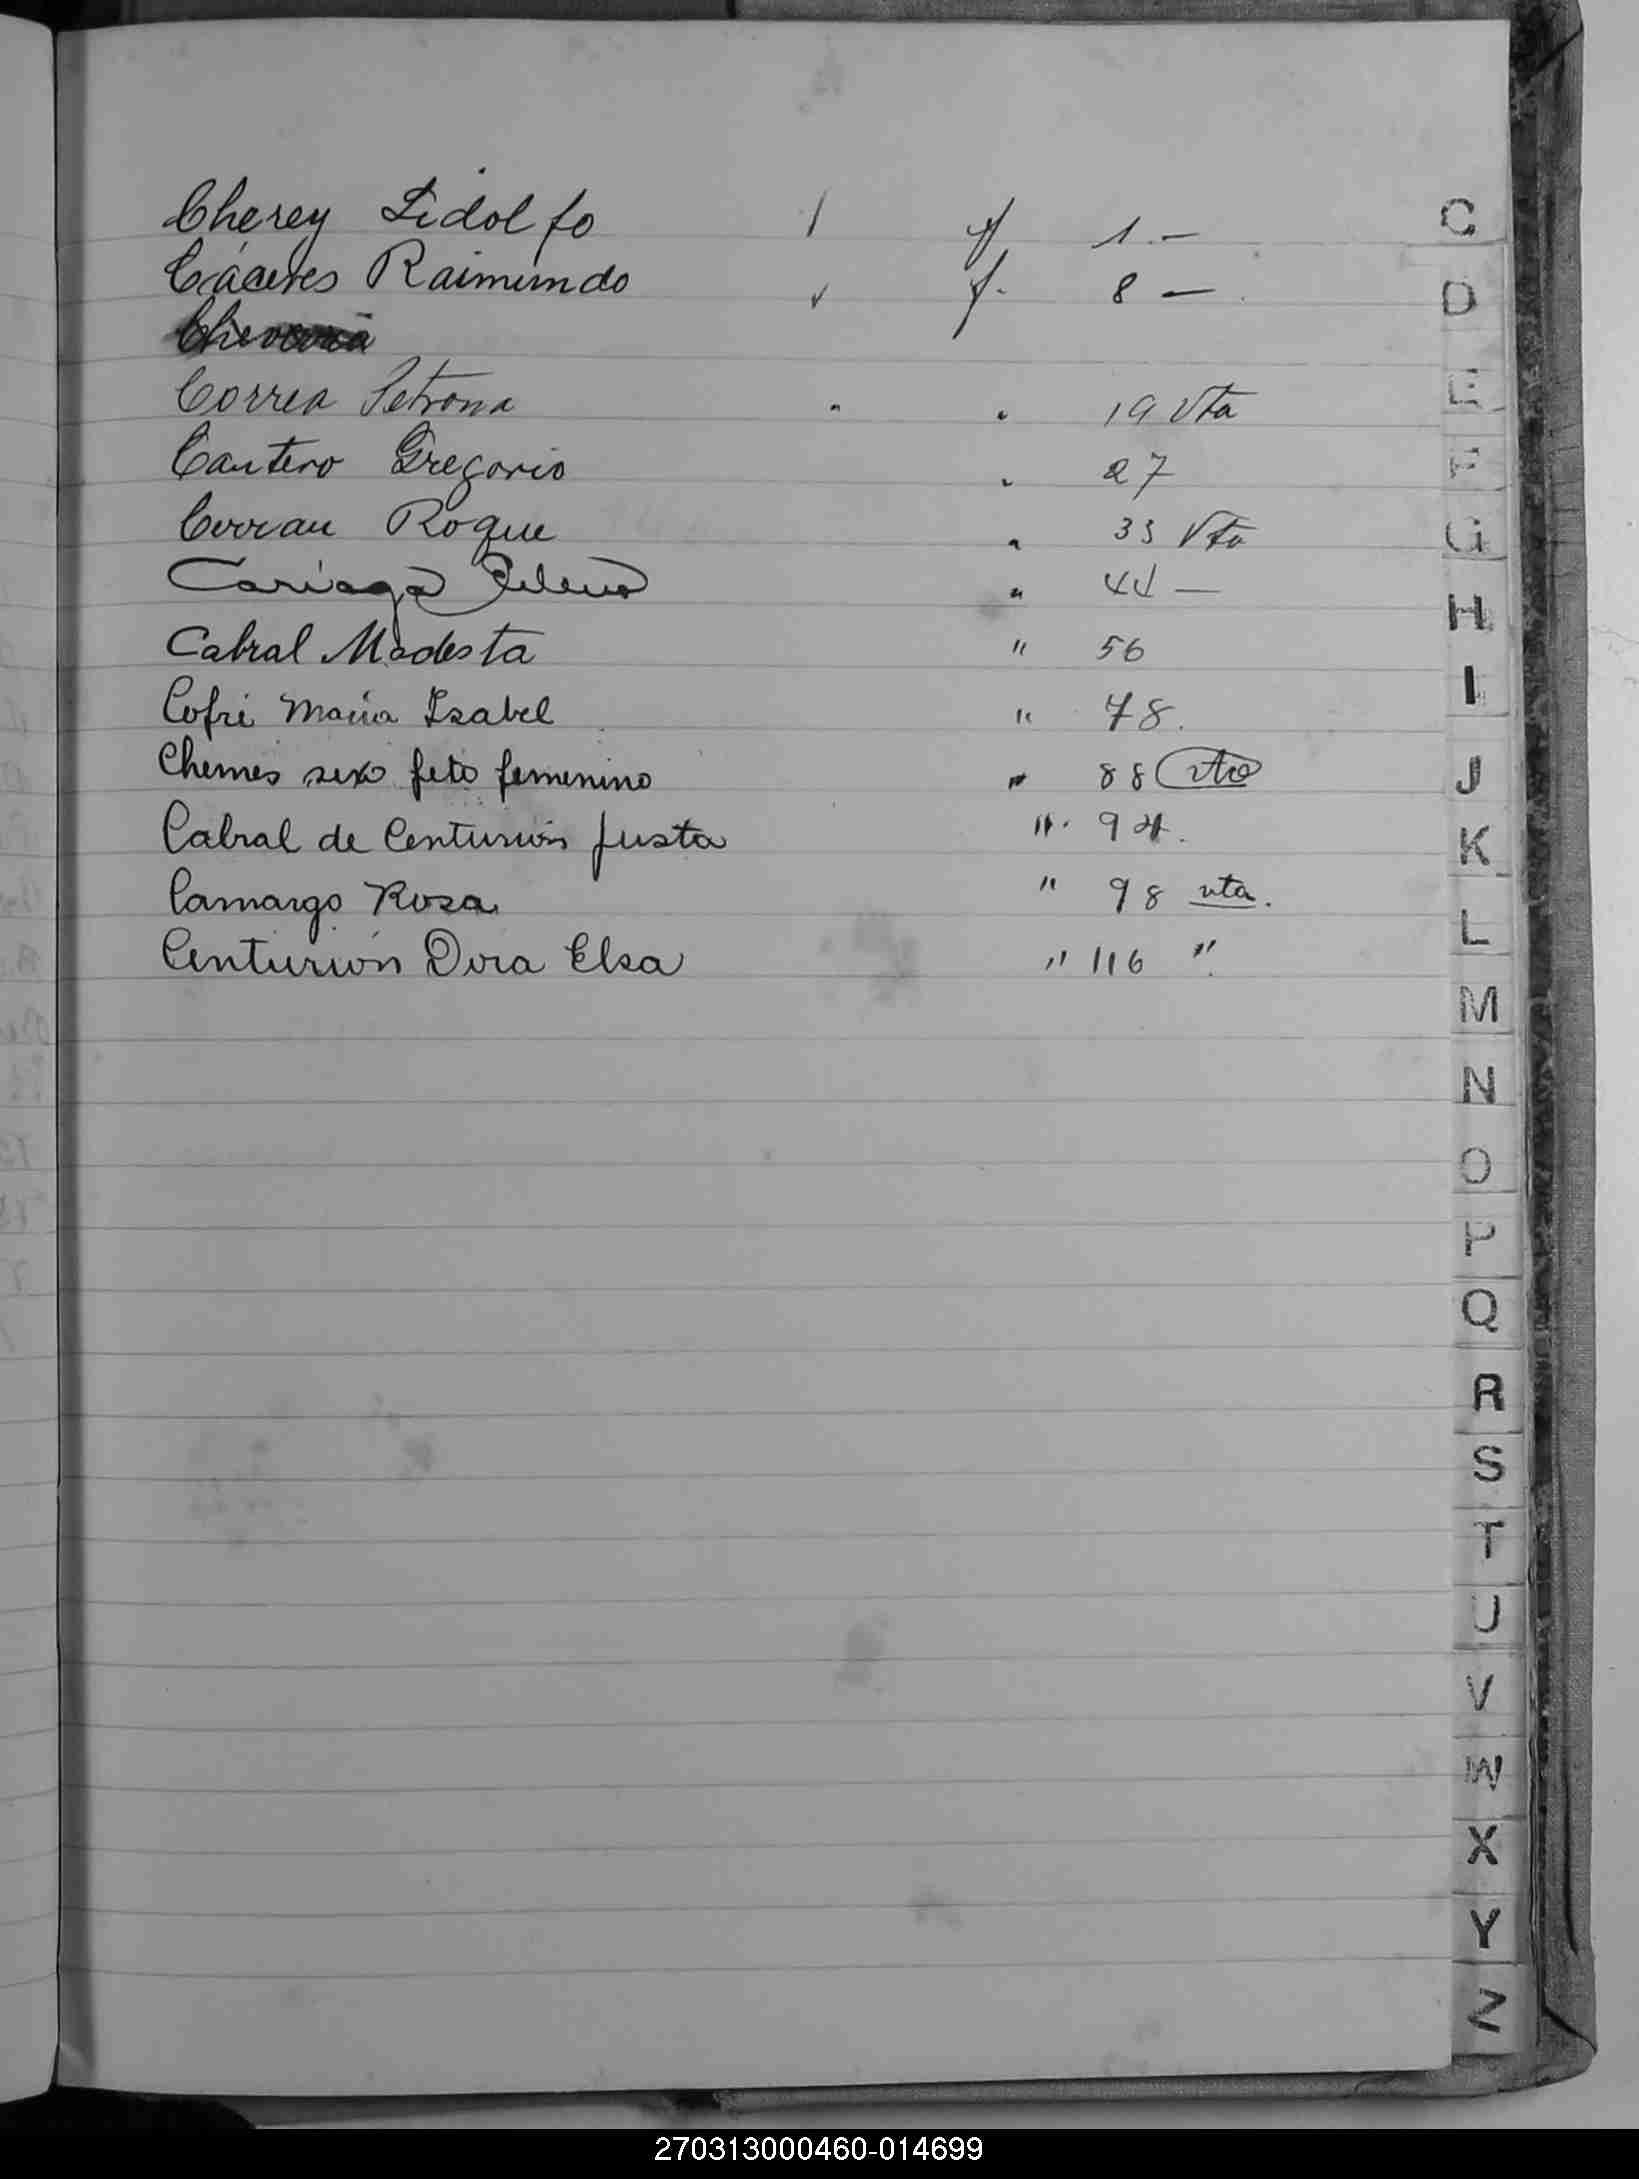 Cherey Lidolfo / f 1.—
Cáceres Raimundo f. 8 —
Correa Petrona " " 19 vta
Cantero Gregorio " 27
Roque " 33 Vta
Cariaga " 44 —
Cabral Modesta " 56
Cofri Maria Isabel " 78.
Chemes sexo feto femenino " 88 vta
Cabral de Centurión Justa " 94.
Camargo Rosa " 98 vta.
Centurión Dora Elsa " 116 "
C
D
E
F
G
H
I
J
K
L
M
N
O
P
Q
R
S
T
U
V
W
X
Y
Z
270313000460-014699